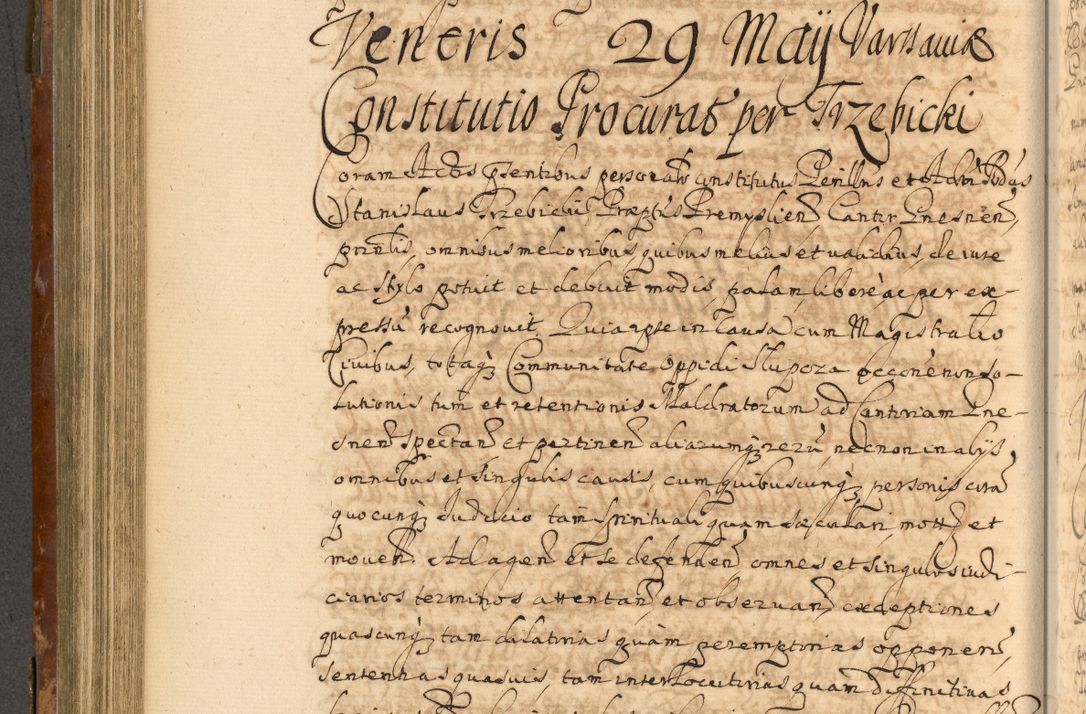 Veneris 29 Maÿ Varsauiæ
Constitutio Procurat per Trzebicki
Coram Actis pñtibus personalr constitutus Perillris et Adm Rñdus
Stanislaus Trzebicki Præptus Premyslien Cantor Gnesnen,
omnibus melioribus, quibus melius et validius, de iure
ac stylo potuit et debuit modis, palam, libere ac per ex-
pressũ recognouit. Quia ipse in Causa cum Magistratu
Ciuibus, totaq; Communitate Oppidi Slupcza occõne non so-
lutionis tum et retentionis Maldratorum ad Cantoriam Gne-
snen Spectan et pertinen aliarumq; rerũ, necnon in alijs
omnibus et singulis causis, cum quibuscunq; personis corã
quocunq; Judicio tam Spirituali quam sæculari mott et
mouen. Ad agen et se defenden omnes et singulos iudi-
ciarios terminos attentan et obseruan, exceptiones
quascunq; tam dilatorias quàm peremptorias opponen,
sententias quasuis, tam interlocutorias quam diffinitiuas